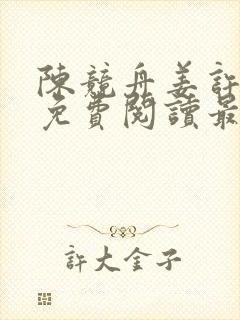 陳競舟姜許
免費閱讀最
許大金子